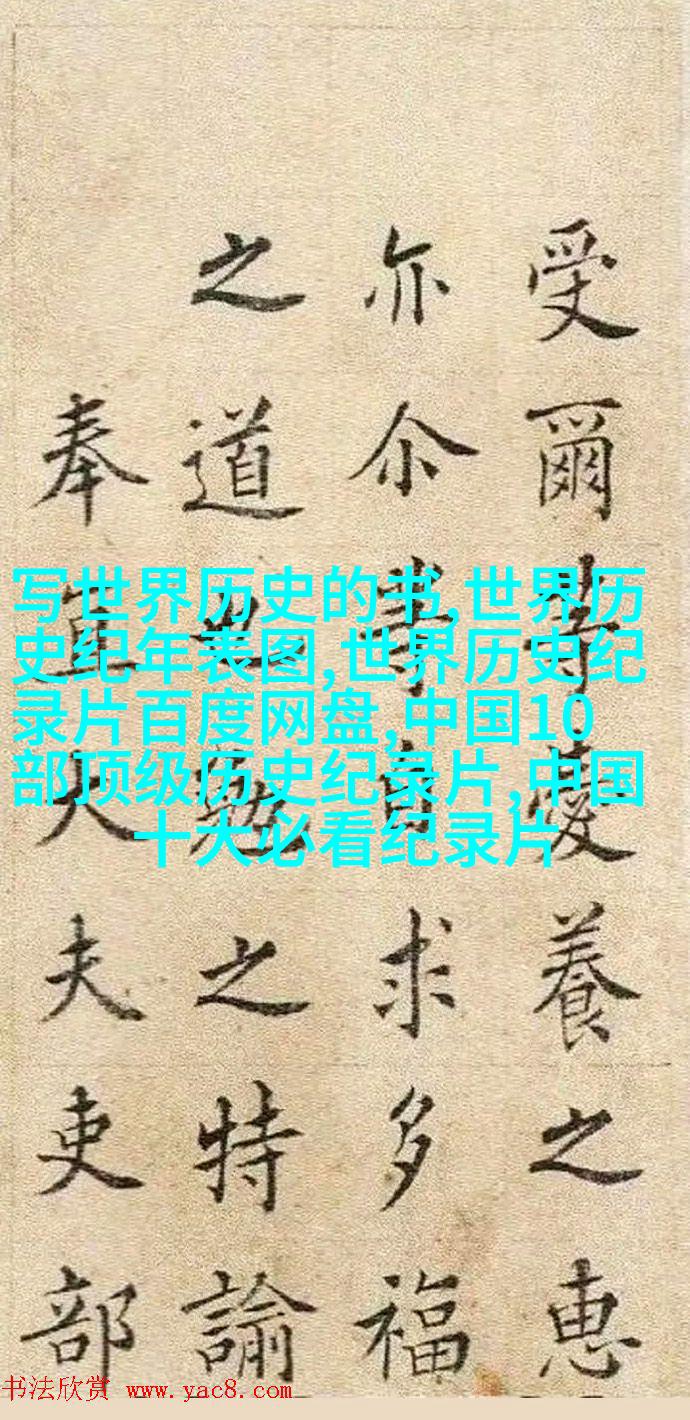 受爾等愛養之惠
亦尒等自求多福
之道也勉之特諭
奉直大夫吏部
写世界历史的书,世界历
史纪年表图,世界历史纪
录片百度网盘,中国10
部顶级历史纪录片,中国
十大必看纪录片
书法欣赏 www.yac8.com